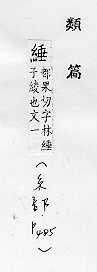 類篇
緟
都果切字林緟
子綾也文一
(糸部
P485)